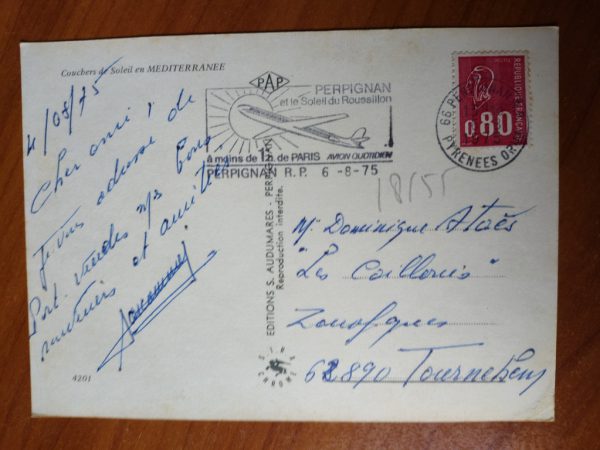 Couchers de Soleil en MEDITERRANEE
4/08/75
Cher ami,
Je vous adresse de
Port-Vendres mes bons
souvenirs et amitiés.
4201
PAP
PERPIGNAN
et le Soleil du Roussillon
à moins de 1 h. de PARIS AVION QUOTIDIEN
PERPIGNAN R.P. 6-8-75
REPUBLIQUE FRANCAISE
0,80
66 PERPIGNAN
PYRENEES OR
EDITIONS S. AUDUMARES - PERPIGNAN
Reproduction interdite.
18/55
Mr Dominique
"Les Caillouis"
Zouafques
62890 Tournehem